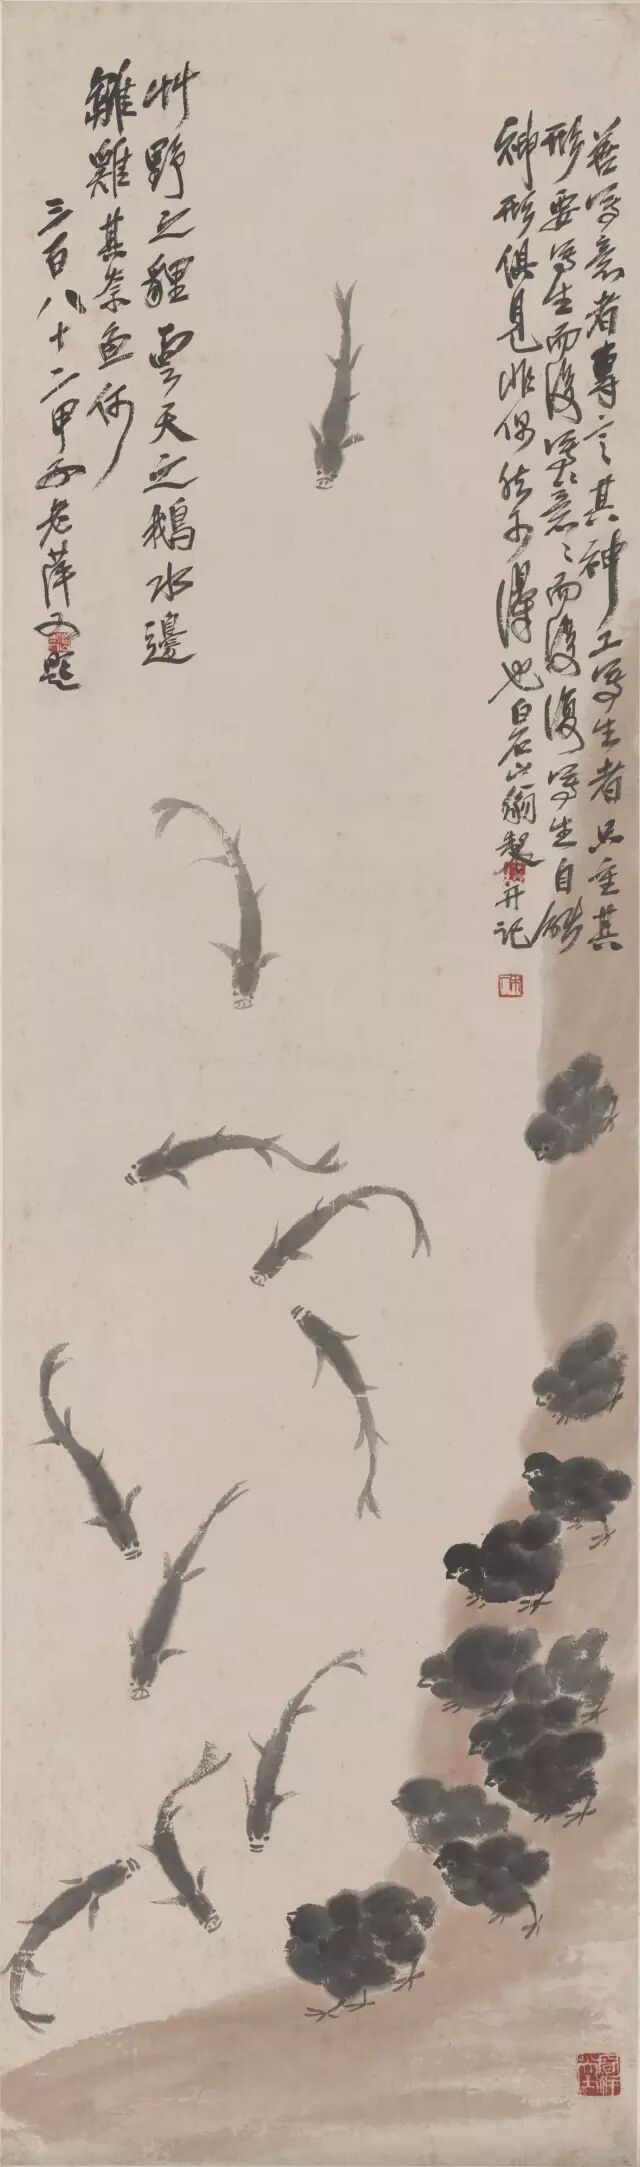 善写意者专言其神工写生者只重其
形要写生而後写意写意而後復写生自能
神形俱見非偶然可得也白石山翁製并记
艸野之貍雲天之鵝水邊
雛雞其奈魚何
三百八十二甲子老萍又題